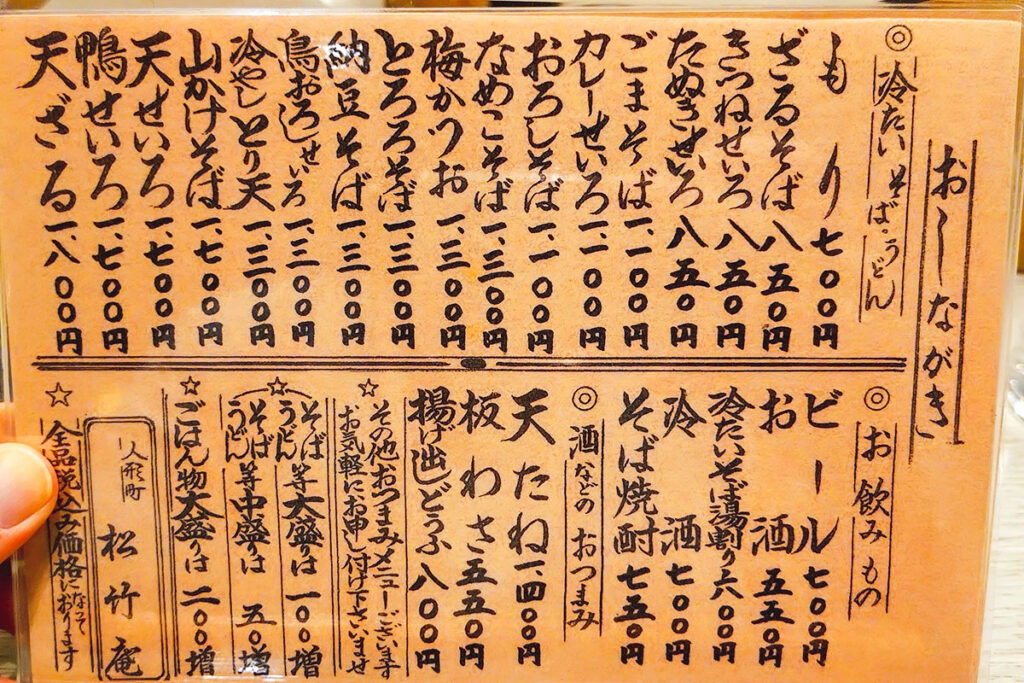 おしながき
◎冷たいそば・うどん
もり 七〇〇円
ざるそば 八五〇円
きつねせいろ 八五〇円
たぬきせいろ 八五〇円
ごまそば 一、一〇〇円
カレーせいろ 一、一〇〇円
おろしそば 一、一〇〇円
なめこそば 一、三〇〇円
梅かつお 一、三〇〇円
とろろそば 一、三〇〇円
納豆そば 一、三〇〇円
鳥おろしせいろ 一、三〇〇円
冷やしとり天 一、三〇〇円
山かけそば 一、七〇〇円
天せいろ 一、七〇〇円
鴨せいろ 一、七〇〇円
天ざる 一、八〇〇円
◎お飲みもの
ビール 七〇〇円
お酒 五五〇円
冷たいそば湯割り 六〇〇円
冷酒 七〇〇円
そば焼酎 七五〇円
◎酒などのおつまみ
天たね 一、四〇〇円
板わさ 五五〇円
揚げ出しどうふ 八〇〇円
☆その他おつまみメニューございます
お気軽にお申し付け下さいませ
☆そばうどん等大盛りは 一〇〇増
そばうどん等中盛りは 五〇増
☆ごはん物大盛りは 二〇〇増
人形町 松竹庵
☆全品税込み価格になっております